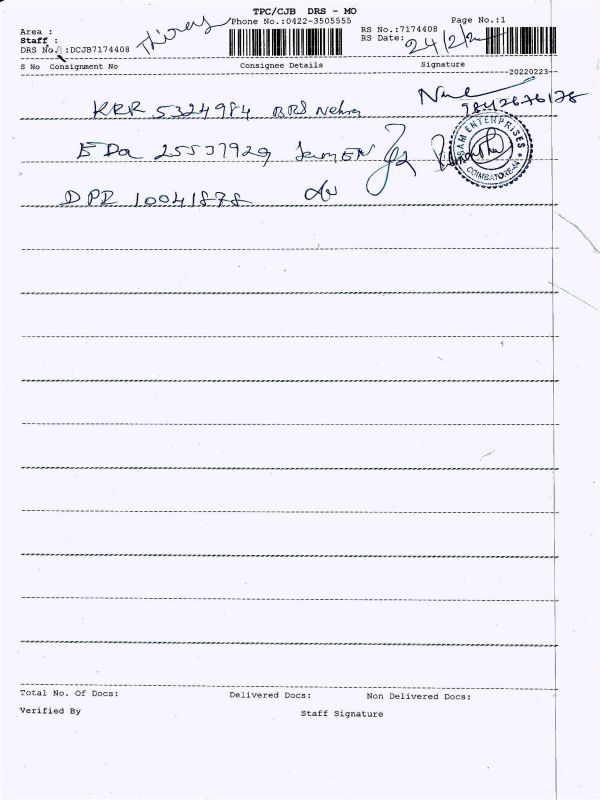 TPC/CJB DRS - MO
Area :
Phone No.:0422-3505555
Page No.:1
Staff :
RS No.:7174408
DRS No. :DCJB7174408
RS Date:
24/2/
S No Consignment No Consignee Details Signature
20220223
KRR 5324984 BRS Nehru
EDa 25537929
SAM ENTERPRISES
COIMBATORE-44
DPR 10041878
Total No. Of Docs: Delivered Docs: Non Delivered Docs:
Verified By Staff Signature